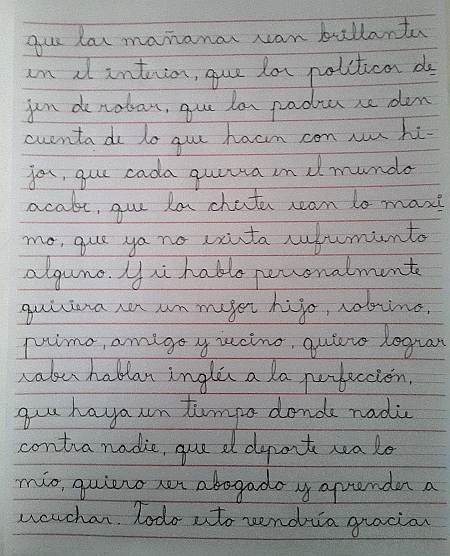 que las mañanas sean brillantes
en el interior, que los políticos de
jen de robar, que los padres se den
cuenta de lo que hacen con sus hi-
jos, que cada guerra en el mundo
acabe, que los chistes sean lo maxi
mo, que ya no exista sufrimiento
alguno. Y si hablo personalmente
quisiera ser un mejor hijo, sobrino,
primo, amigo y vecino, quiero lograr
saber hablar inglés a la perfección,
que haya un tiempo donde nadie
contra nadie, que el deporte sea lo
mío, quiero ser abogado y aprender a
escuchar. Todo esto vendría gracias